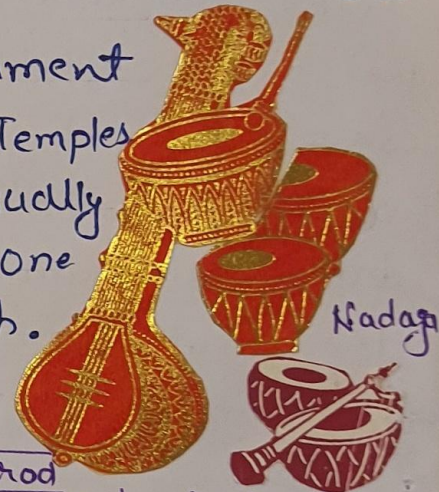 ment
Temples
udlly
one
h.
Nadaga
rod